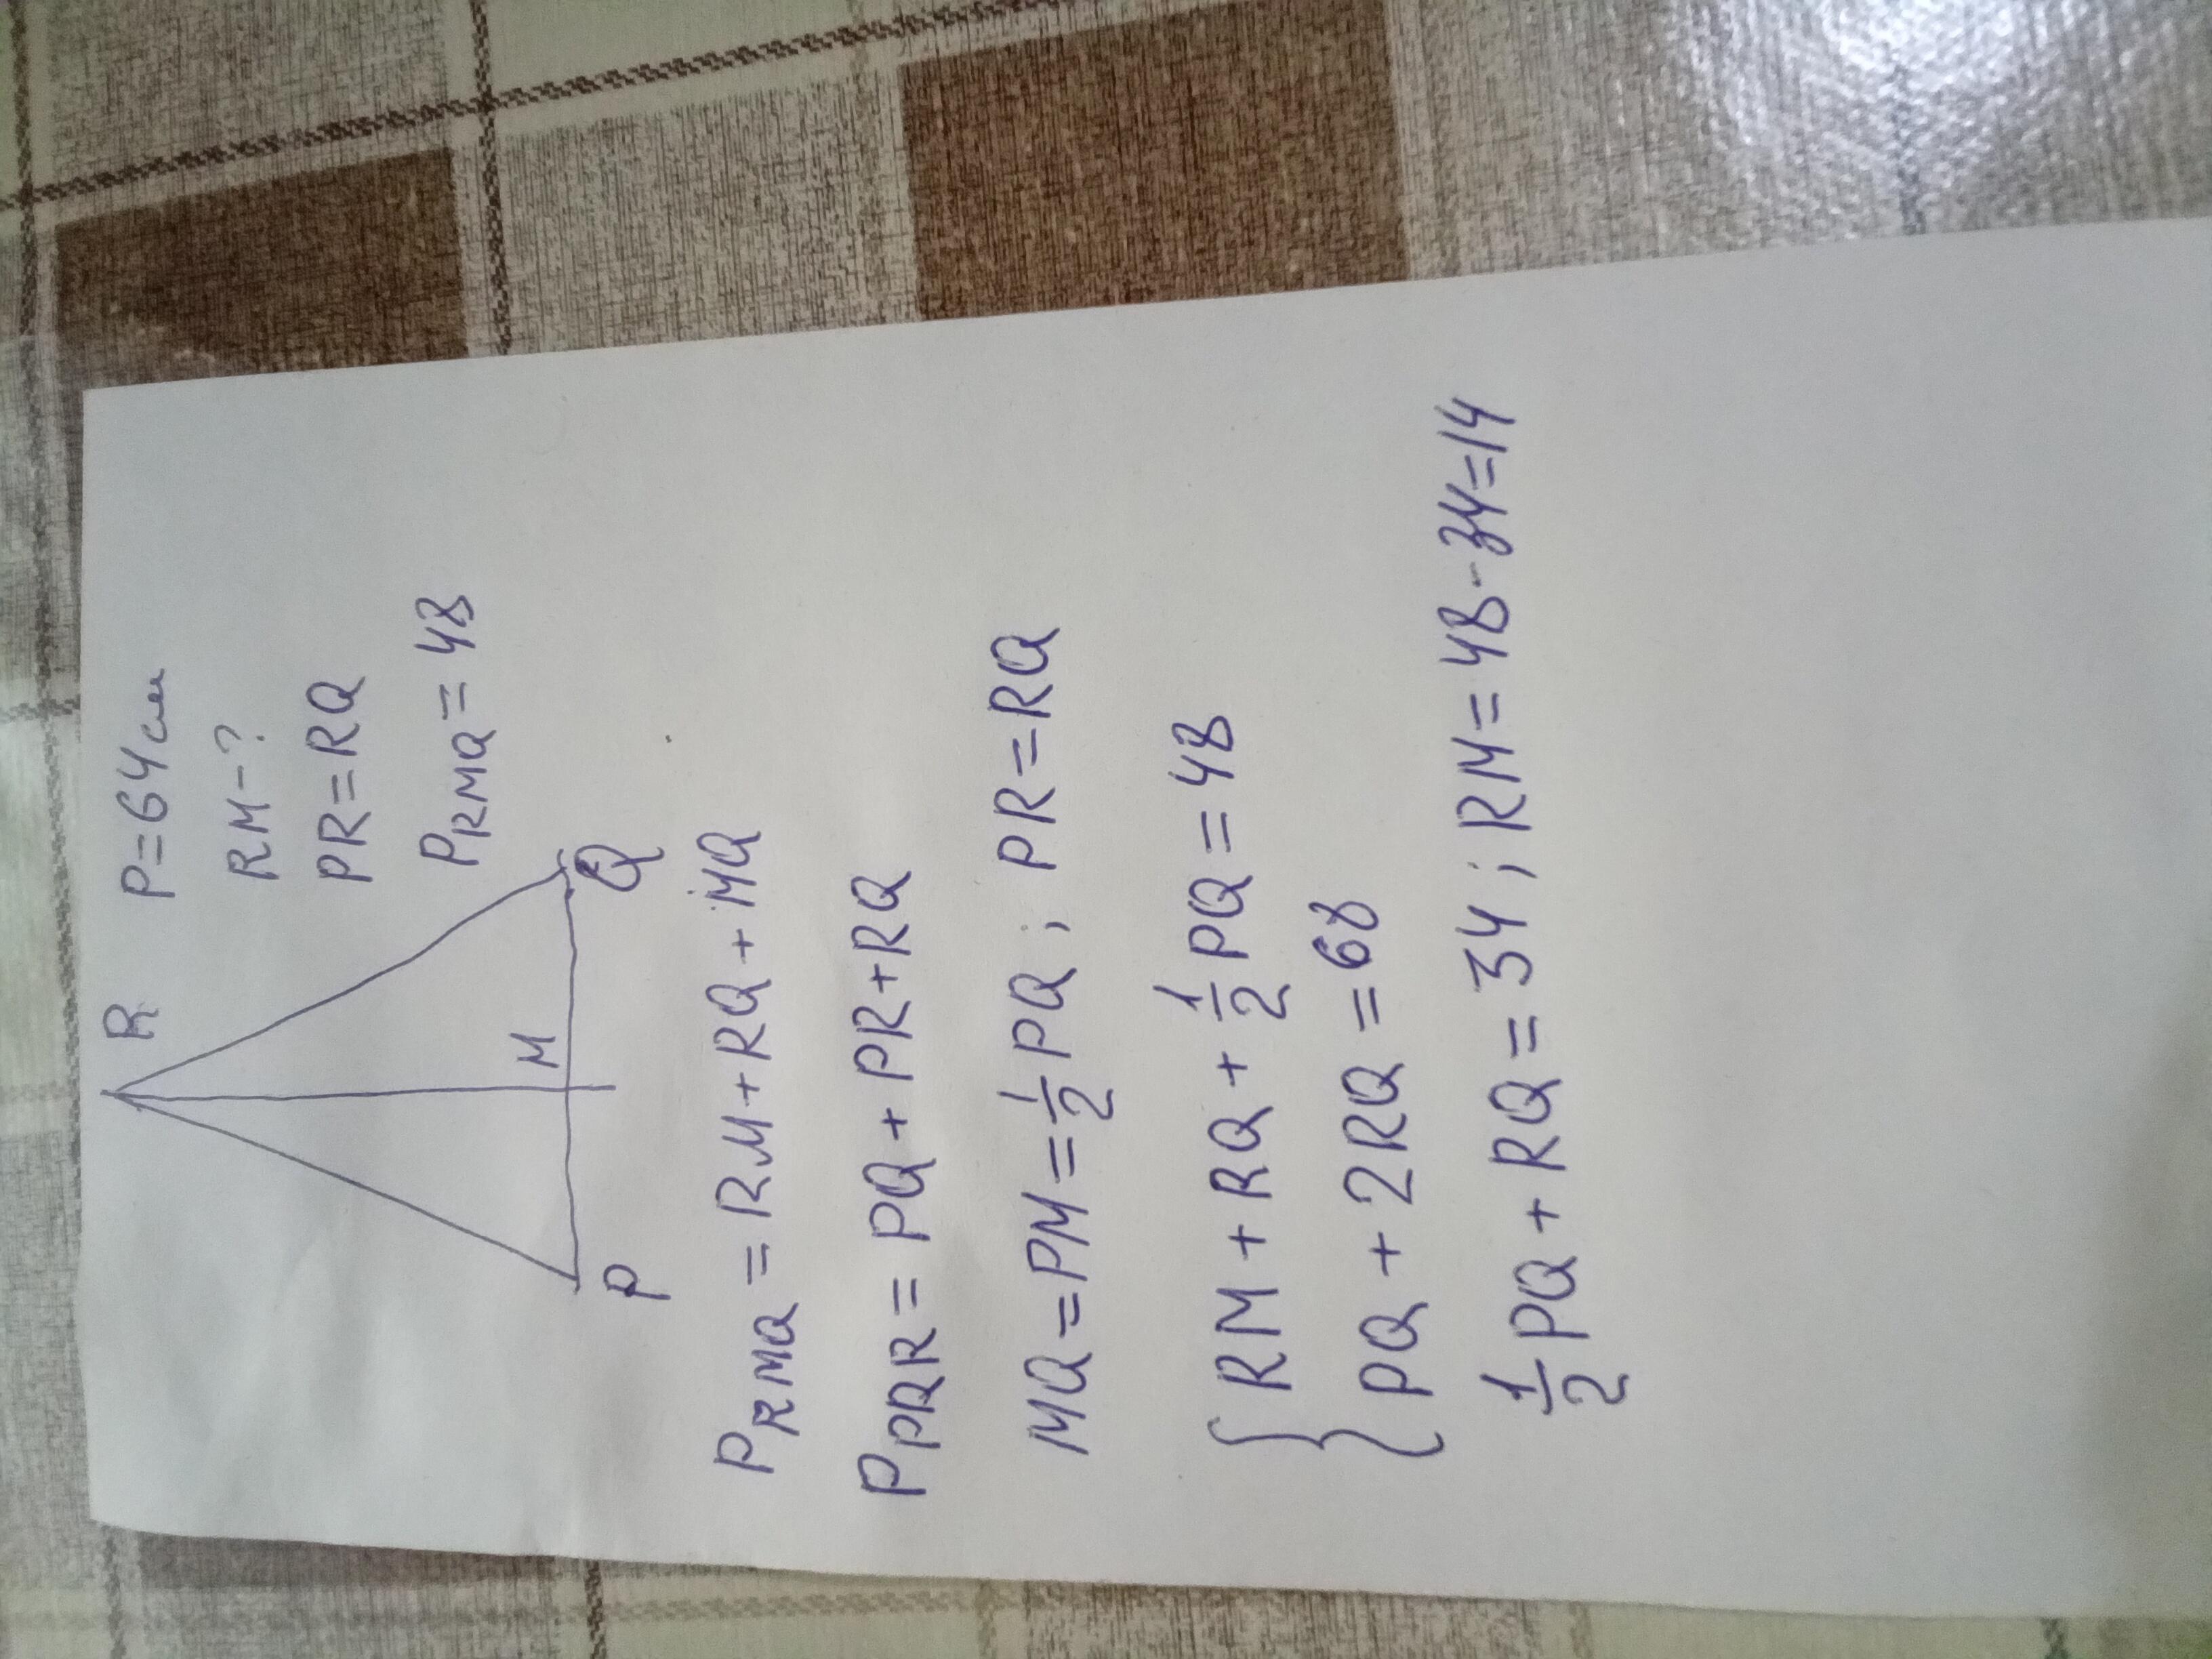 R P=64 см
RM-?
PR=RQ
P_RMQ=48
M
P Q
P_RMQ=RM+RQ+MQ
P_PQR=PQ+PR+RQ
MQ=PM=1/2PQ; PR=RQ
{RM+RQ+1/2PQ=48
PQ+2RQ=68
1/2PQ+RQ=34; RM=48-34=14